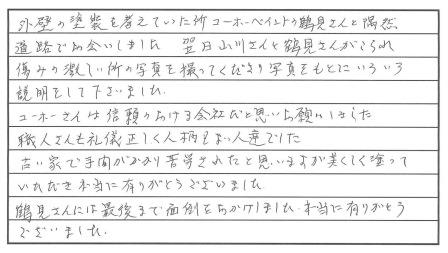 外壁の塗装を考えていた所コーホーペイントの鶴見さんと偶然
道路で出会いしました 翌日山川さんと鶴見さんがこられ
傷みの激しい所の写真を撮ってくださり写真をもとにいろいろ
説明をして下さいました.
コーホーさんは信頼のおける会社だと思いお願いしました
職人さんも礼儀正しく人柄もよい人達でした
古い家で手間がかかり苦労されたと思いますが美しく塗って
いただき本当に有りがとうございました
鶴見さんには最後まで面倒をおかけしました.本当に有りがとう
ございました.